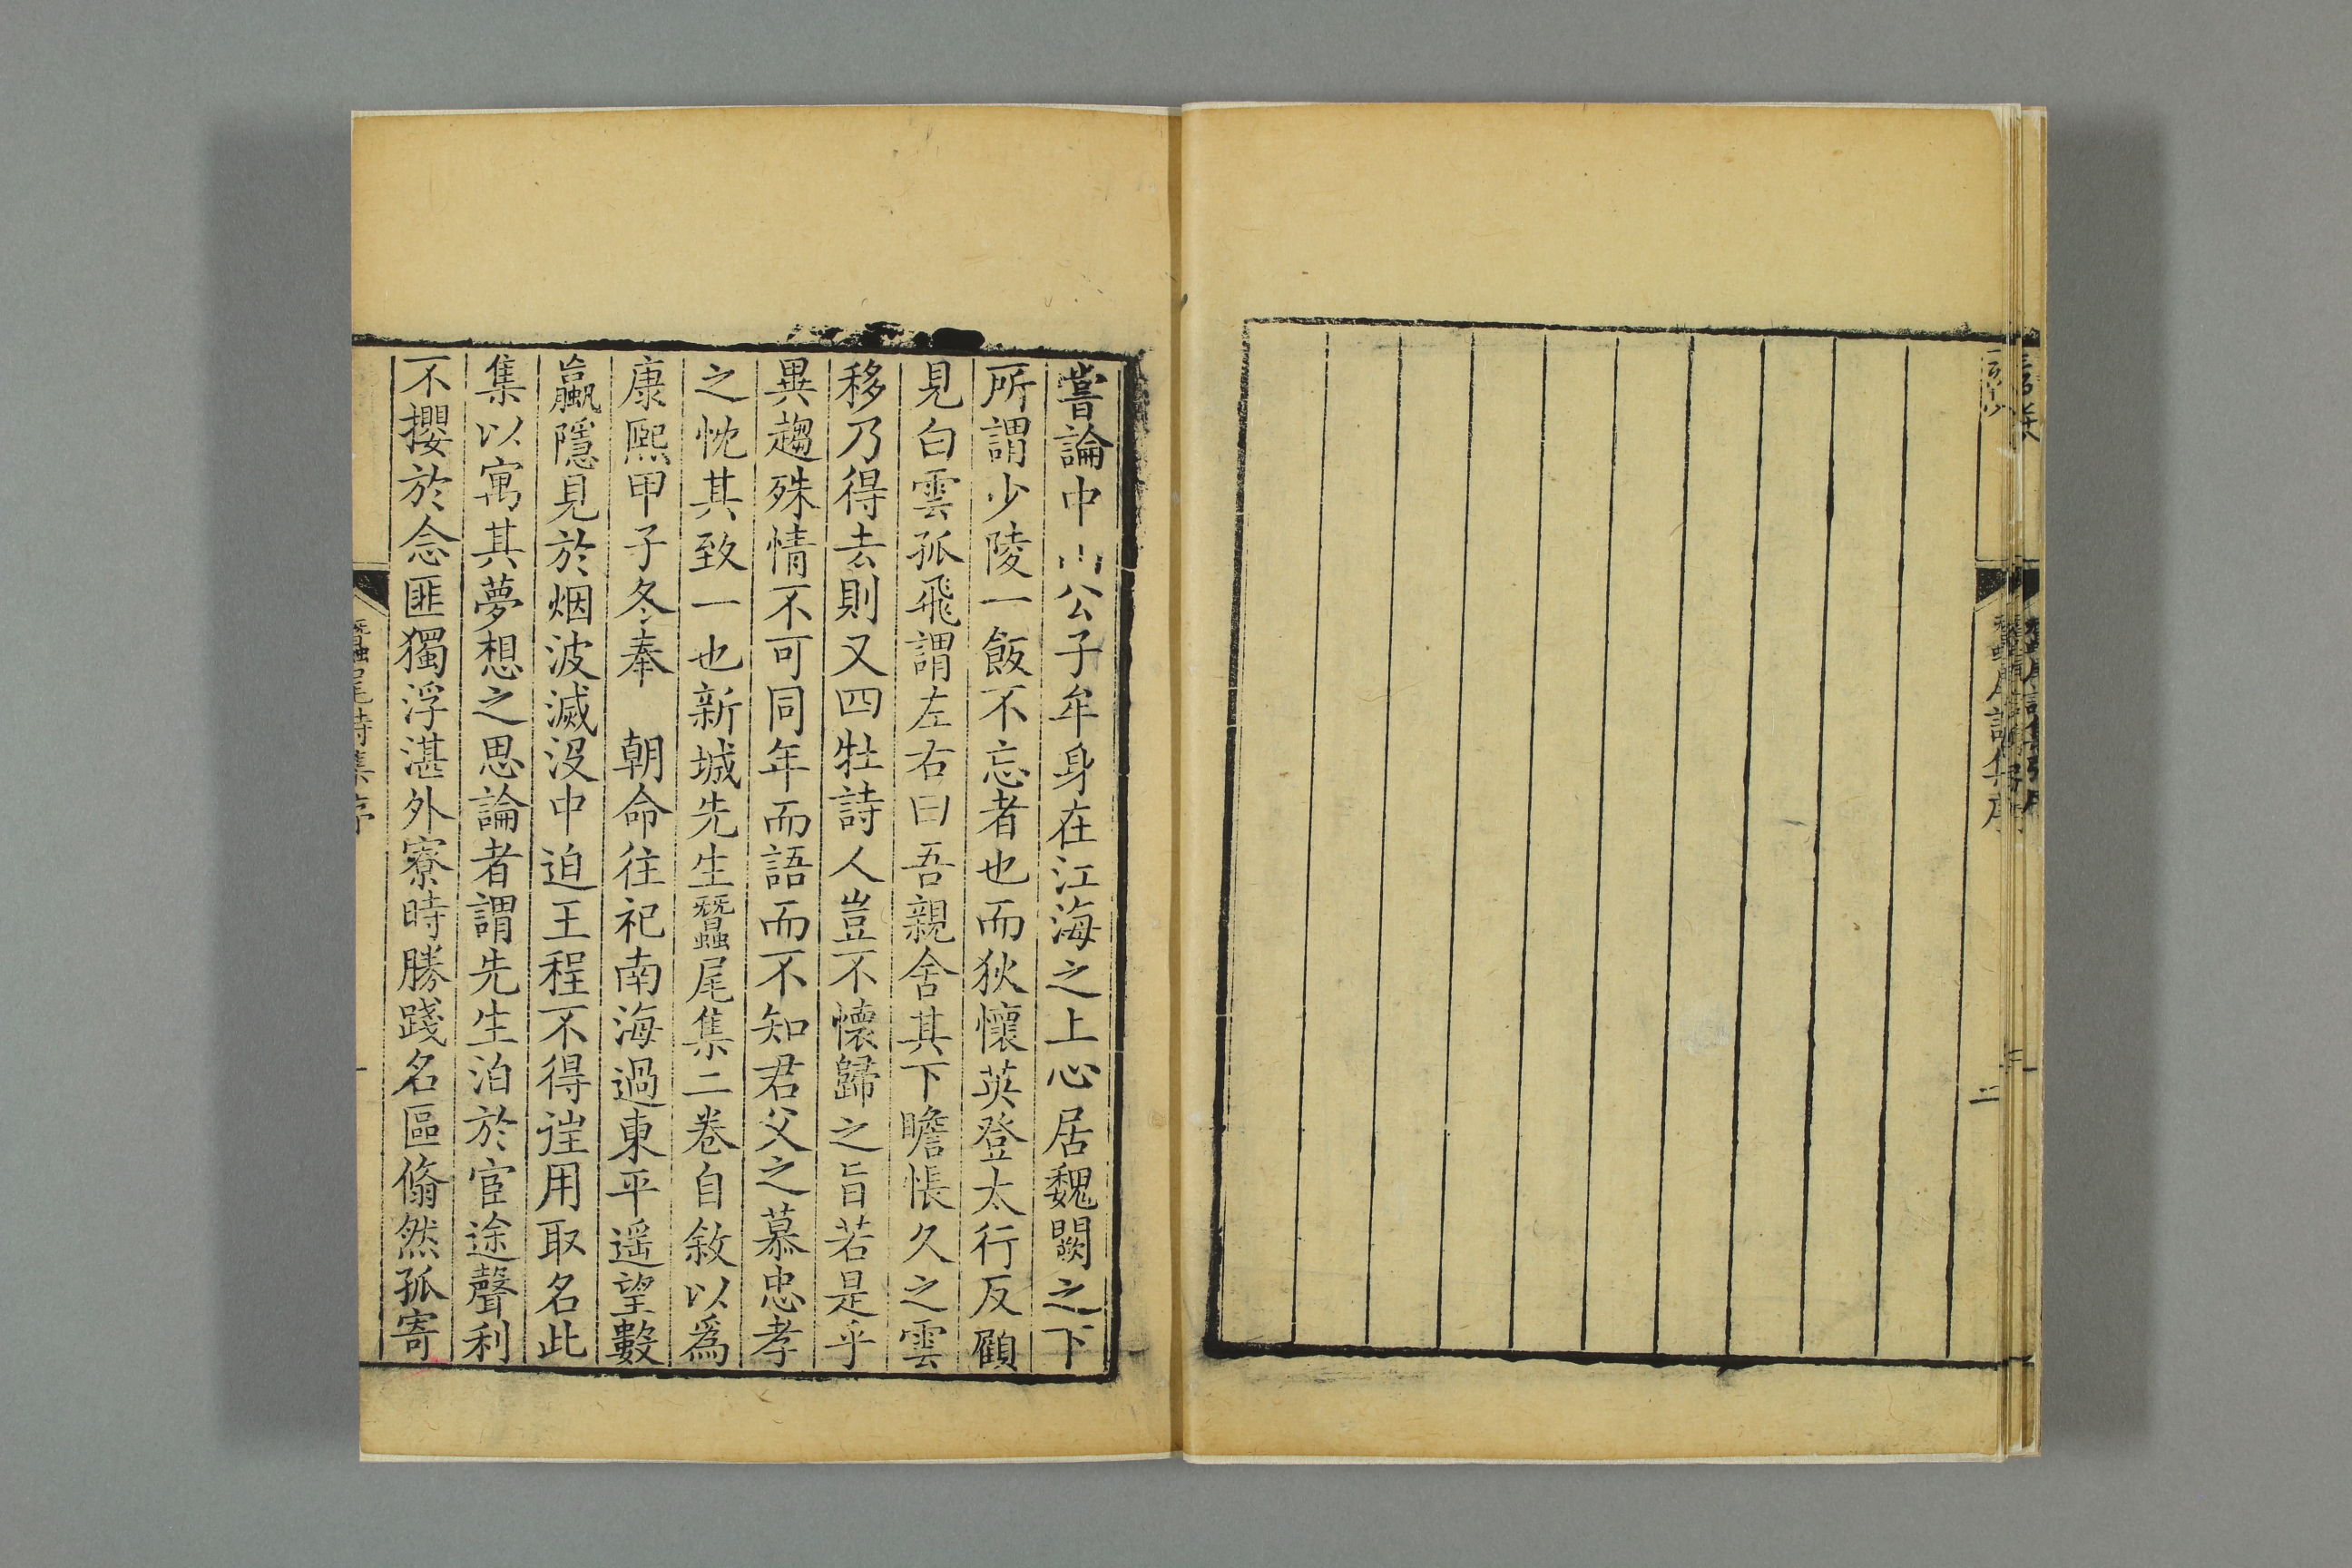 嘗論中山公子牟身在江海之上心居魏闕之下
所謂少陵一飯不忘者也而狄懷英登太行反顧
見白雲孤飛謂左右曰吾親舍其下瞻悵久之雲
移乃得去則又四牡詩人豈不懷歸之旨若是乎
異趨殊情不可同年而語而不知君父之慕忠孝
之忱其致一也新城先生蠶尾集二卷自敘以爲
康熙甲子冬奉 朝命往祀南海過東平遥望數
蠃隱見於烟波滅没中迫王程不得徃用取名此
集以寓其夢想之思論者謂先生泊於宦途聲利
不攖於念匪獨浮湛外寮時勝踐名區翛然孤寄
蠶尾詩集序
一
蠶尾詩集序
二